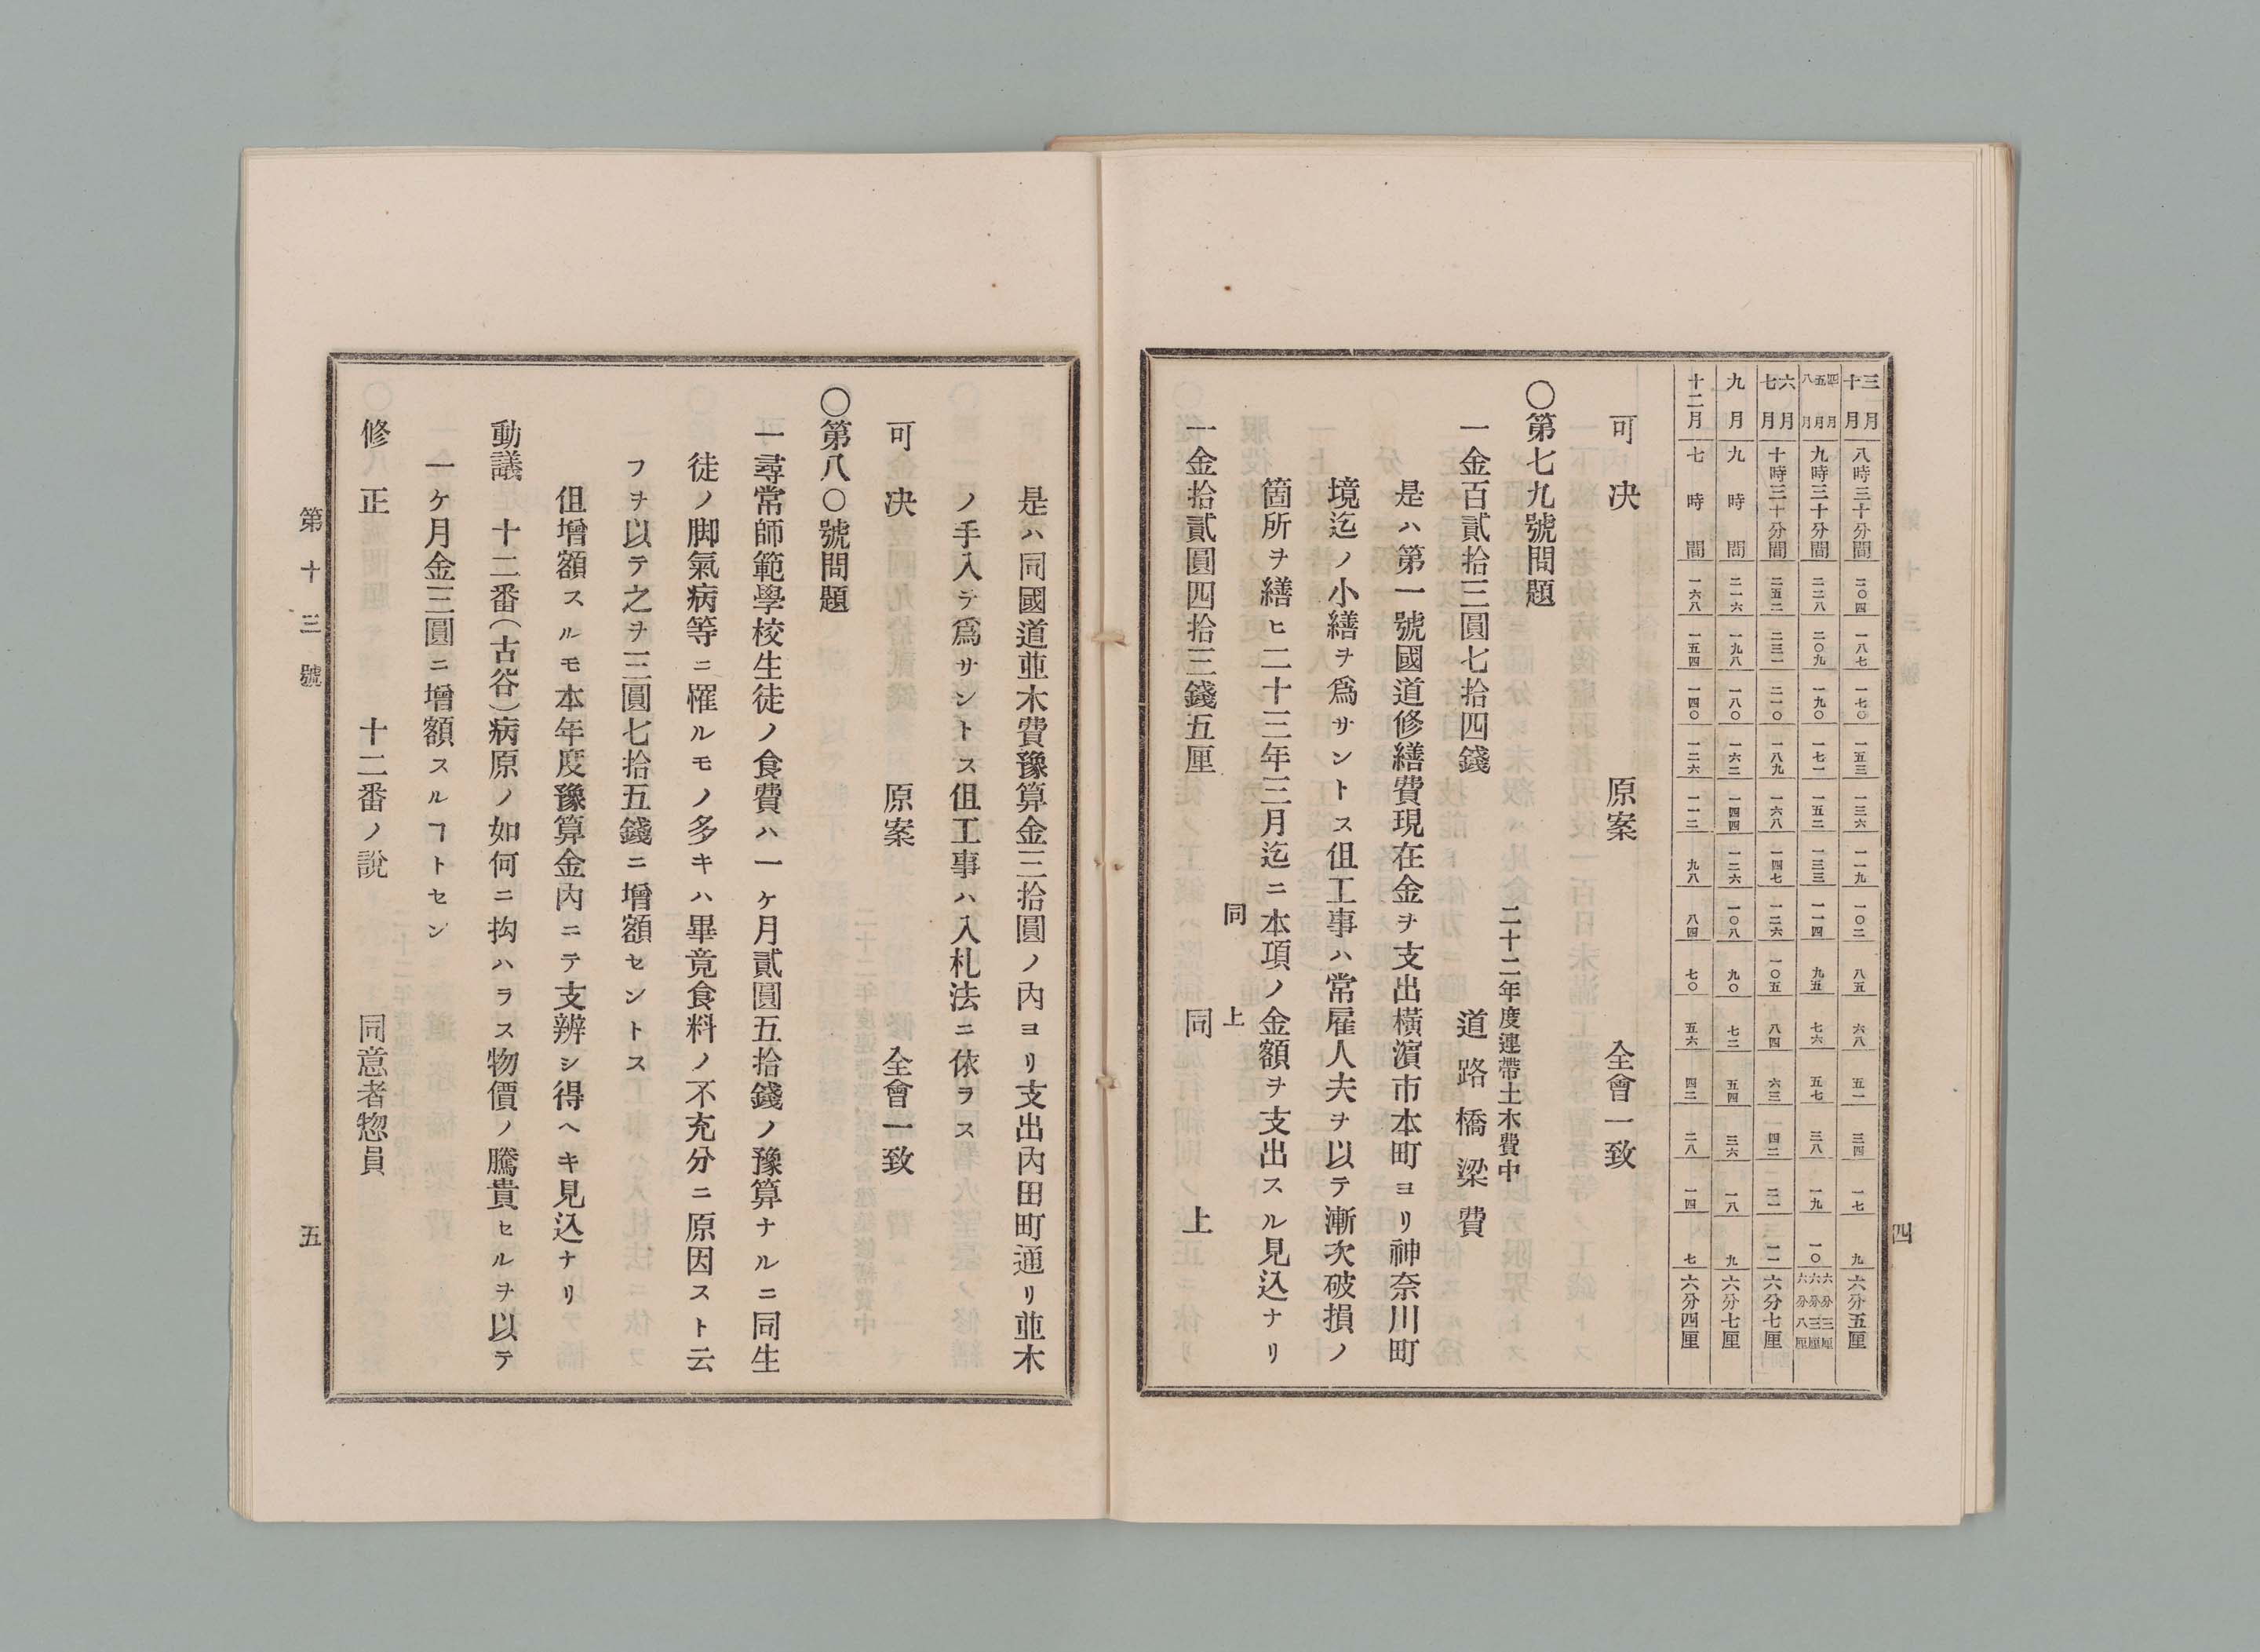 四
三月 十月 八時三十分間 二〇四 一八七 一七〇 一五三 一三六 一一九 一〇二 八五 六八 五一 三四 一七 九 六分五厘
四月 五月 八月 九時三十分間 二二八 二〇九 一九〇 一七一 一五二 一三三 一一四 九五 七六 五七 三八 一九 一〇 六分三厘 六分三厘 六分八厘
六月 七月 十時三十分間 二五二 二三一 二一〇 一八九 一六八 一四七 一二六 一〇五 八四 六三 四二 二一 一一 六分七厘
九月 九時間 二一六 一九八 一八〇 一六二 一四四 一二六 一〇八 九〇 七二 五四 三六 一八 九 六分七厘
十二月 七時間 一六八 一五四 一四〇 一二六 一一二 九八 八四 七〇 五六 四二 二八 一四 七 六分四厘
可決 原案 全會一致
〇第七九號問題
二十二年度連帶土木費中
一金百貳拾三圓七拾四錢 道路橋梁費
是ハ第一號國道修繕費現在金ヲ支出橫濵市本町ヨリ神奈川町
境迄ノ小繕ヲ爲サントス但工事ハ常雇人夫ヲ以テ漸次破損ノ
箇所ヲ繕ヒ二十三年三月迄ニ本項ノ金額ヲ支出スル見込ナリ
同上
一金拾貳圓四拾三錢五厘 同上
是ハ同國道並木費豫算金三拾圓ノ內ヨリ支出內田町通リ並木
ノ手入テ爲サントス但工事ハ入札法ニ依ラス
可決 原案 全會一致
〇第八〇號問題
一尋常師範學校生徒ノ食費ハ一ケ月貳圓五拾錢ノ豫算ナルニ同生
徒ノ脚氣病等ニ罹ルモノ多キハ畢竟食料ノ不充分ニ原因スト云
フヲ以テ之ヲ三圓七拾五錢ニ增額セントス
但增額スルモ本年度豫算金內ニテ支辨シ得ヘキ見込ナリ
動議 十二番(古谷)病原ノ如何ニ拘ハラス物價ノ騰貴セルヲ以テ
一ケ月金三圓ニ增額スルヿトセン
修正 十二番ノ說 同意者惣員
第十三號 五